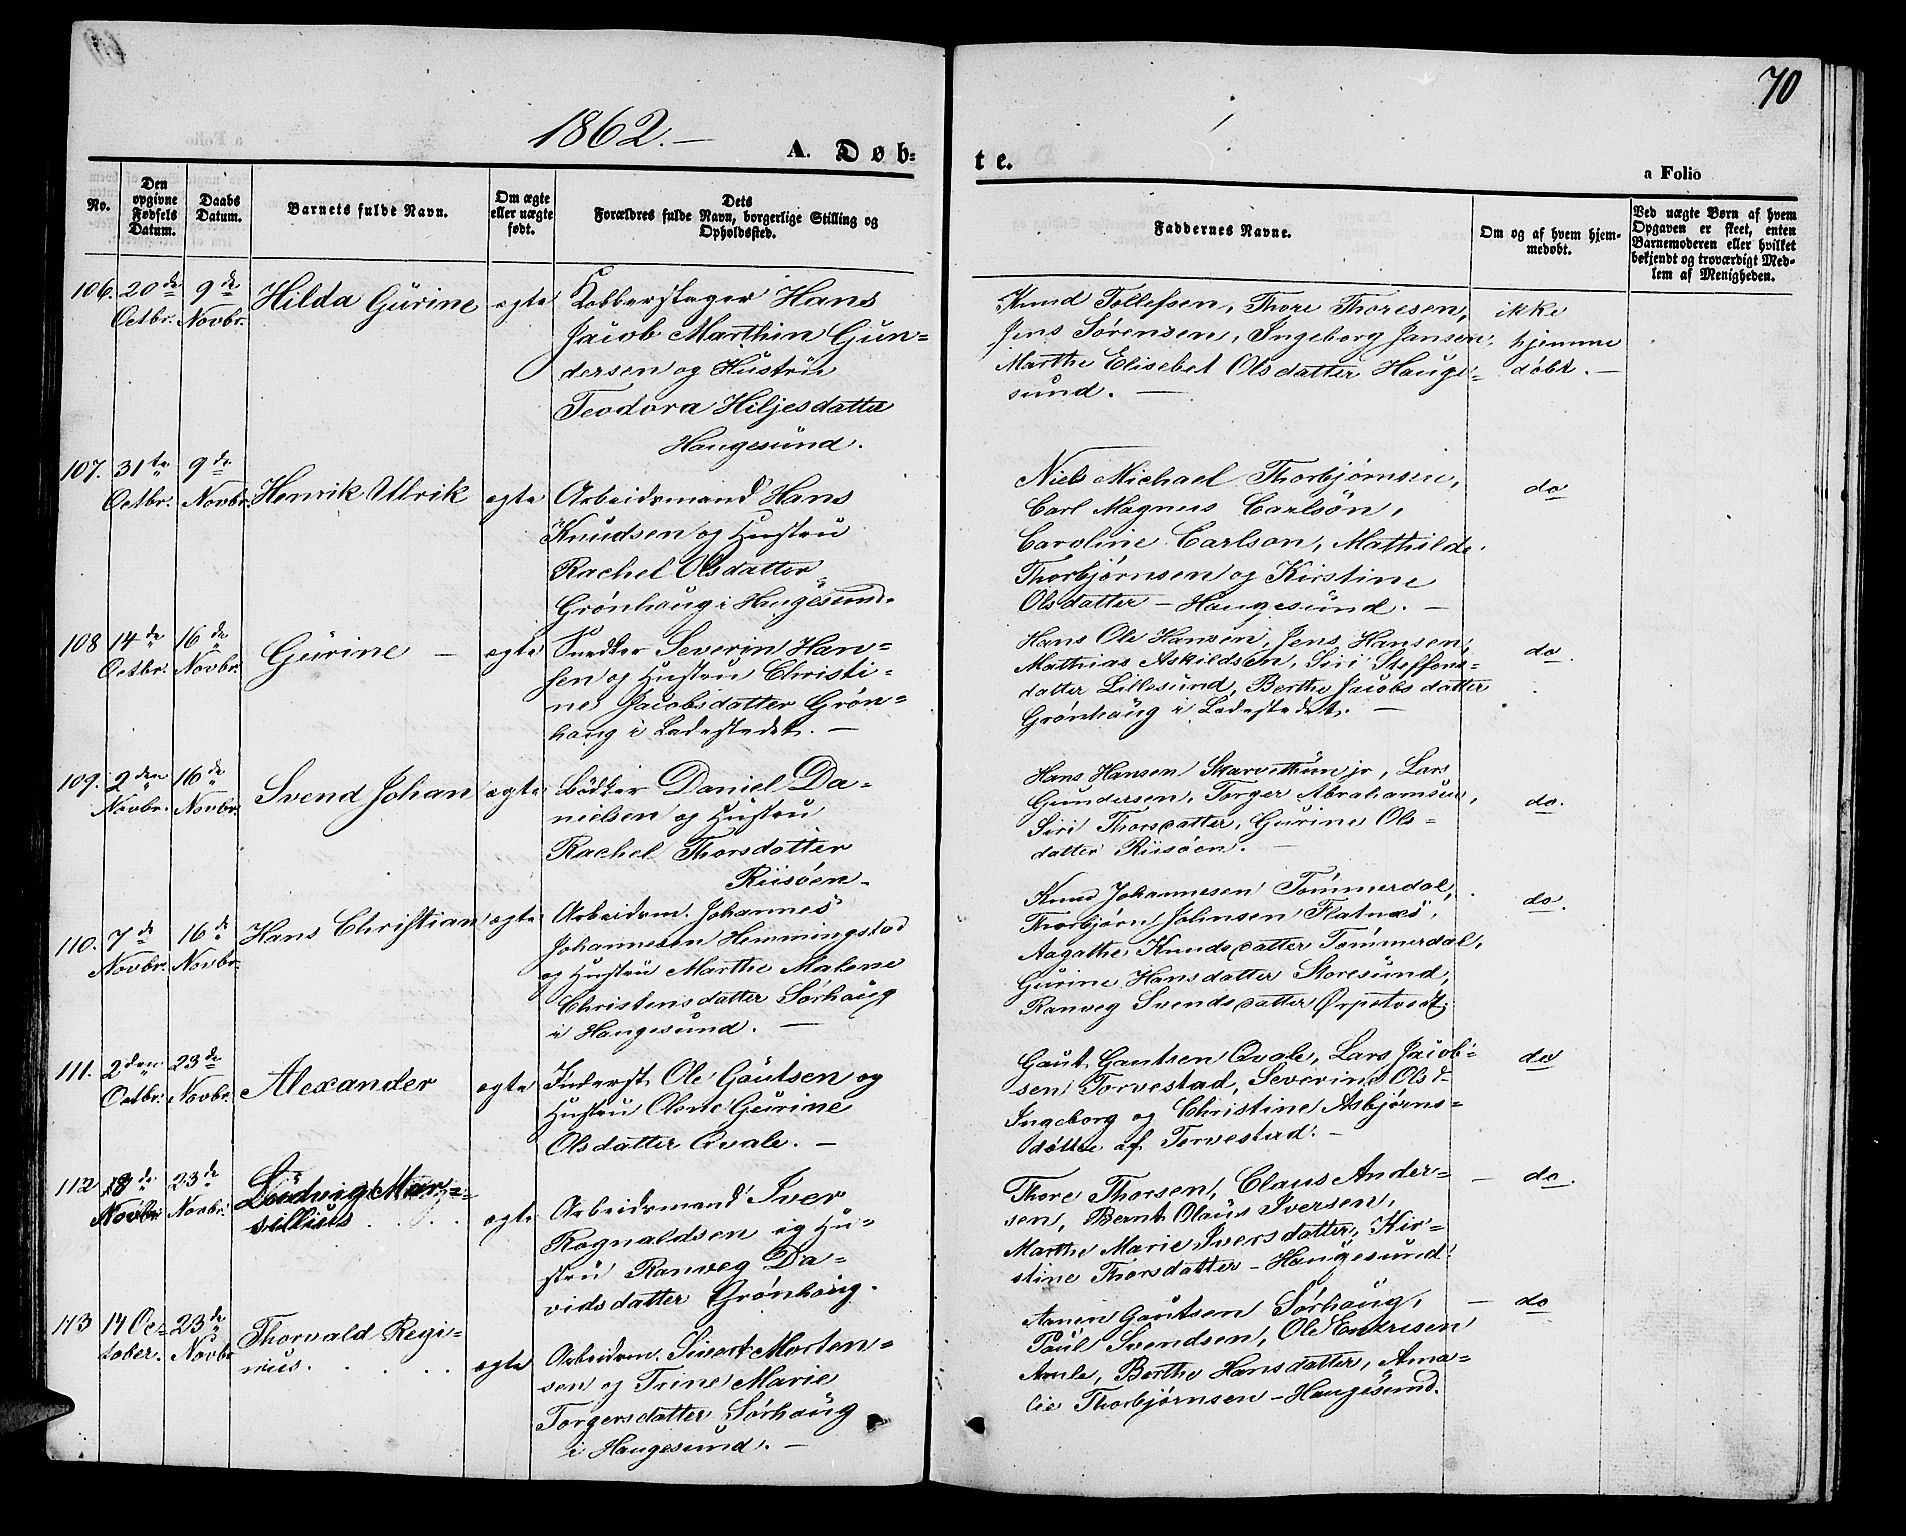 70
1862.—
A. Døb-
te.
a Folio
No.
Den opgivne Fødsels Datum.
Daabs Datum.
Barnets fulde Navn.
Om ægte eller uægte født.
Dets Forældres fulde Navn, borgerlige Stilling og Opholdssted.
Faddernes Navne.
Om og af hvem hjemmedøbt.
Ved uægte Børn af hvem Opgaven er skeet, enten Barnemoderen eller hvilket bekjendt og troværdigt Medlem af Menigheden.
106. 20de Octbr. 9de Novbr. Hilda Gürine ægte
Kobberslager Hans
Jacob Marthin Gun-
dersen og Hustru
Teodora Hiljesdatter
Haugesund.
Knud Tollefsen, Thore Thoresen,
Jens Sørensen, Ingeborg Jansen,
Marthe Elisebet Olsdatter Hauge-
sund. —
ikke
hjemme
døbt. —
107. 31te Octbr. 9de Novbr. Henrik Ulrik ægte
Arbeidsmand Hans
Knudsen og Hustru
Rachel Olsdatter
Grønhaug i Haugesund.
Niels Michael Thorbjørnsen,
Carl Magnus Carlsön,
Caroline Carlson, Mathilde
Thorbjørnsen og Kirstine
Olsdatter — Haugesund. —
do
108 14de Octbr. 16de Novbr. Gürine — ægte
Snedker Severin Han-
sen og Hustru Christi-
ne Jacobsdatter Grøn-
haug i Ladestedet. —
Hans Ole Hansen, Jens Hansen,
Mathias Askildsen, Siri Steffens-
datter Lillesund, Berthe Jacobsdatter
Grønhaug i Ladestedet. —
do.
109. 2den Novbr. 16de Novbr. Svend Johan ægte
Bödker Daniel Da-
nielsen og Hustru
Rachel Thorsdatter
Riisöen.
Hans Hansen Skarvethun jr, Lars
Gundersen, Torger Abrahamsen,
Siri Thorsdatter, Gurine Ols-
datter Riisöen. —
do.
110. 7de Novbr. 16de Novbr. Hans Christian ægte
Arbeidsm. Johannes
Johannesen Hemmingstad
og Hustru Marthe Malene
Christensdatter Sørhaug
i Haugesund. —
Knud Johannesen Tømmerdal,
Thorbjørn Johnsen Flatnæs,
Aagathe Knudsdatter Tømmerdal,
Gurine Hansdatter Storesund,
Ranveg Svendsdatter Ørpetvedt.
do.
111. 2den Octbr. 23de Novbr. Alexander ægte
Inderst Ole Gautsen og
Hustru Olene Gurine
Olsdatter Qvale. —
Gaut Gautsen Qvale, Lars Jacob-
sen Torvestad, Severine Olsd-
Ingeborg og Christine Asbjørns-
døttre af Torvestad. —
do
112 18de Novbr. 23de Novbr. Ludvig Mar-
sillius . . . . ægte
Arbeidsmand Iver
Rognaldsen og Hu-
stru Ranveg Da-
vidsdatter Grønhaug.
Thore Thorsen, Claus Ander-
sen, Bernt Olaus Iversen,
Marthe Marie Iversdatter, Kir-
stine Thorsdatter — Haugesund.
— do.
113 14 Oc-
tober. 23de Novbr Thorvald Regi-
nius. . . . . ægte
Arbeidsm. Sivert Morten-
sen og Trine Marie
Torgersdatter Sørhaug
i Haugesund. —
Annen Gautsen Sørhaug,
Paul Svendsen, Ole Enkrisen
Berthe Hansdatter, Ama-
lie Thorbjørnsen — Haugesund.
— do